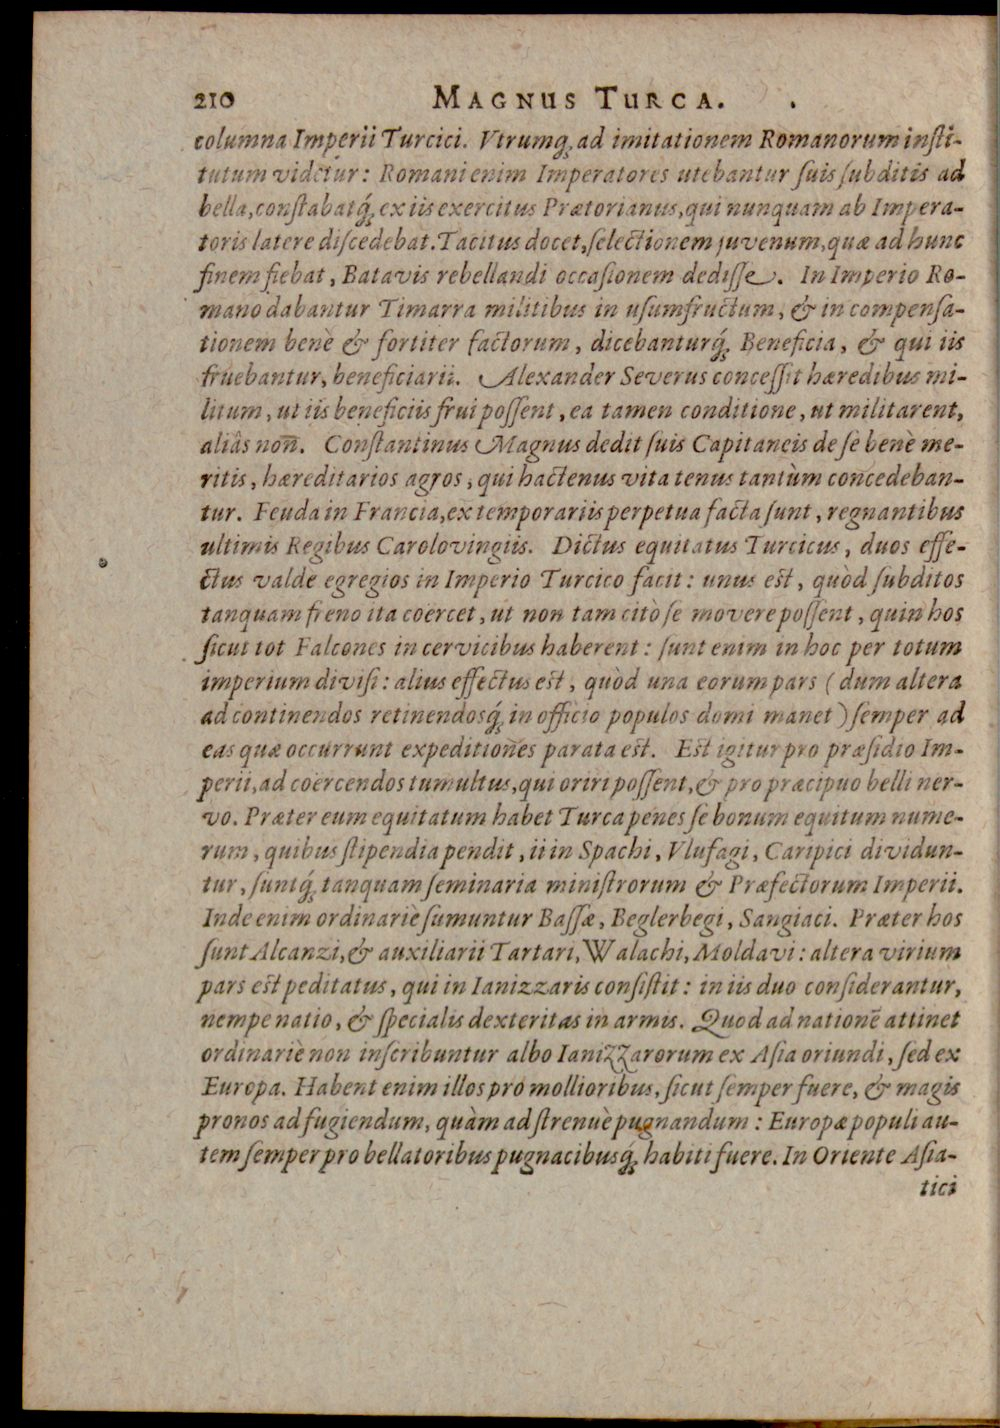 210 MAGNUS TURCA.
columna Imperii Turcici. Vtrumq́ꝫ ad imitationem Romanorum insti-
tutum videtur: Romani enim Imperatores utebantur suis subditis ad
bella, constabatq́ꝫ ex iis exercitus Prætorianus, qui nunquam ab Impera-
toris latere discedebat. Tacitus docet, selectionem juvenum, quæ ad hunc
finem fiebat, Batavis rebellandi occasionem dedisse. In Imperio Ro-
mano dabantur Timarra militibus in usumfructum, & in compensa-
tionem benè & fortiter factorum, dicebanturq́ꝫ Beneficia, & qui iis
fruebantur, beneficiarii. Alexander Severus concessit hæredibus mi-
litum, ut iis beneficiis frui possent, ea tamen conditione, ut militarent,
aliâs non̄. Constantinus Magnus dedit suis Capitaneis de se benè me-
ritis, hæreditarios agros, qui hactenus vita tenus tantùm concedeban-
tur. Feuda in Francia, ex temporariis perpetua facta sunt, regnantibus
ultimis Regibus Carolovingiis. Dictus equitatus Turcicus, duos effe-
ctus valde egregios in Imperio Turcico facit: unus est, quòd subditos
tanquam freno ita coërcet, ut non tam citò se movere possent, quin hos
sicut tot Falcones in cervicibus haberent: sunt enim in hoc per totum
imperium divisi: alius effectus est, quòd una eorum pars (dum altera
ad continendos retinendosq́ꝫ in officio populos domi manet) semper ad
eas quæ occurrunt expeditiones parata est. Est igitur pro præsidio Im-
perii, ad coërcendos tumultus, qui oriri possent, & pro præcipuo belli ner-
vo. Præter eum equitatum habet Turca penes se bonum equitum nume-
rum, quibus stipendia pendit, ii in Spachi, Vlufagi, Caripici dividun-
tur, suntq́ꝫ tanquam seminaria ministrorum & Præfectorum Imperii.
Inde enim ordinariè sumuntur Bassæ, Beglerbegi, Sangiaci. Præter hos
sunt Alcanzi, & auxiliarii Tartari, Walachi, Moldavi: altera virium
pars est peditatus, qui in Ianizzaris consistit: in iis duo considerantur,
nempe natio, & specialis dexteritas in armis. Quod ad nationē attinet
ordinariè non inscribuntur albo Ianizzarorum ex Asia oriundi, sed ex
Europa. Habent enim illos pro mollioribus, sicut semper fuere, & magis
pronos ad fugiendum, quàm ad strenuè pugnandum: Europæ populi au-
tem semper pro bellatoribus pugnacibusq́ꝫ habiti fuere. In Oriente Asia-
tici